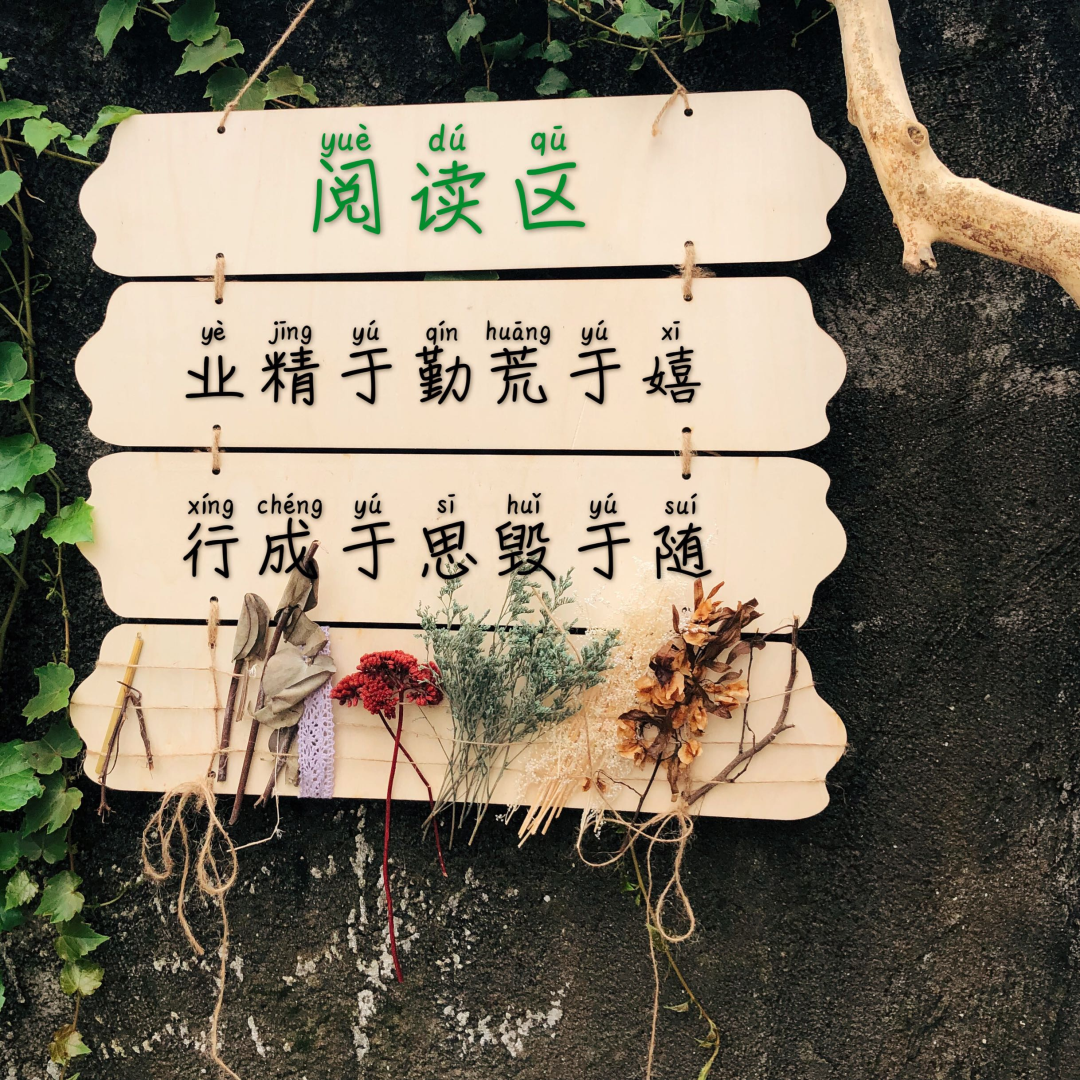 yuè dú qū
阅读区
yè jīng yú qín huāng yú xī
业精于勤荒于嬉
xíng chéng yú sī huǐ yú suí
行成于思毁于随